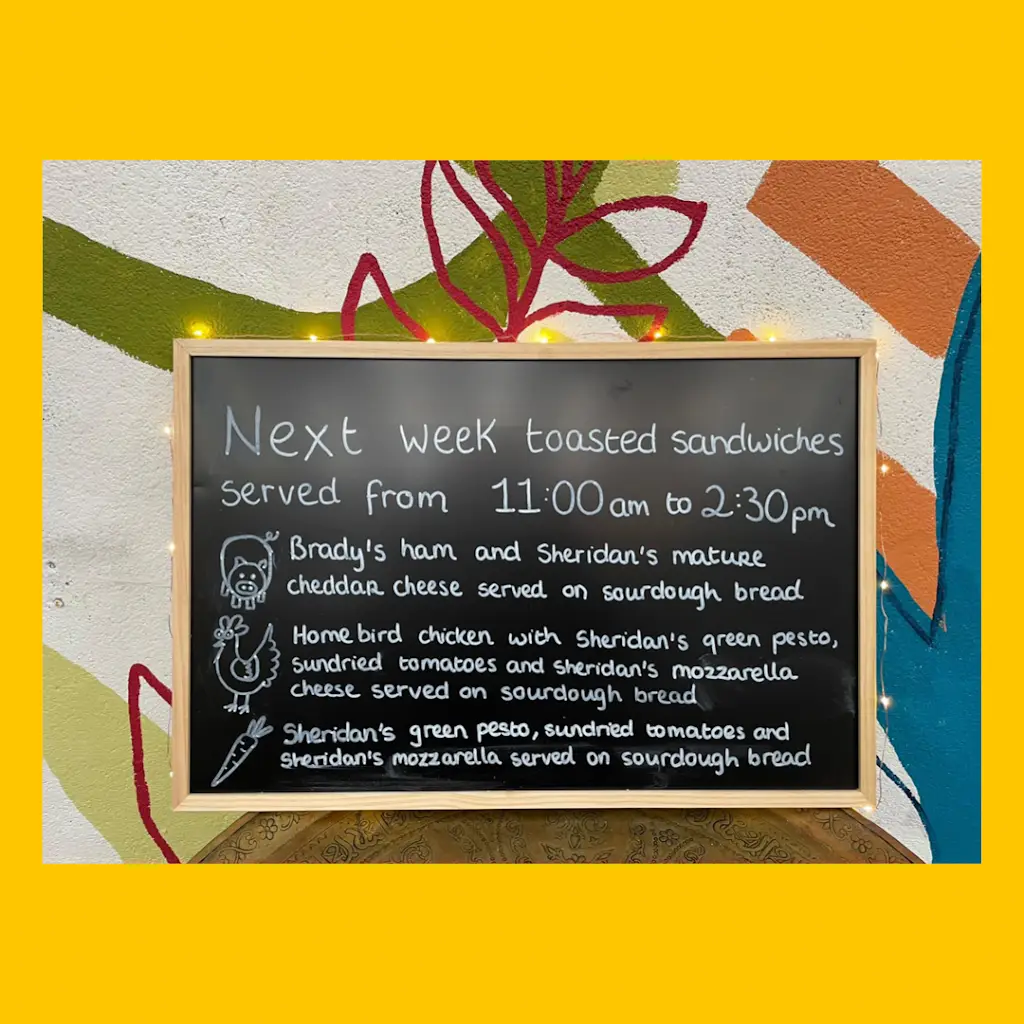 Next week toasted sandwiches
served from 11:00am to 2:30pm
Brady's ham and Sheridan's mature
cheddar cheese served on sourdough bread
Homebird chicken with Sheridan's green pesto,
sundried tomatoes and Sheridan's mozzarella
cheese served on sourdough bread
Sheridan's green pesto, sundried tomatoes and
Sheridan's mozzarella served on sourdough bread